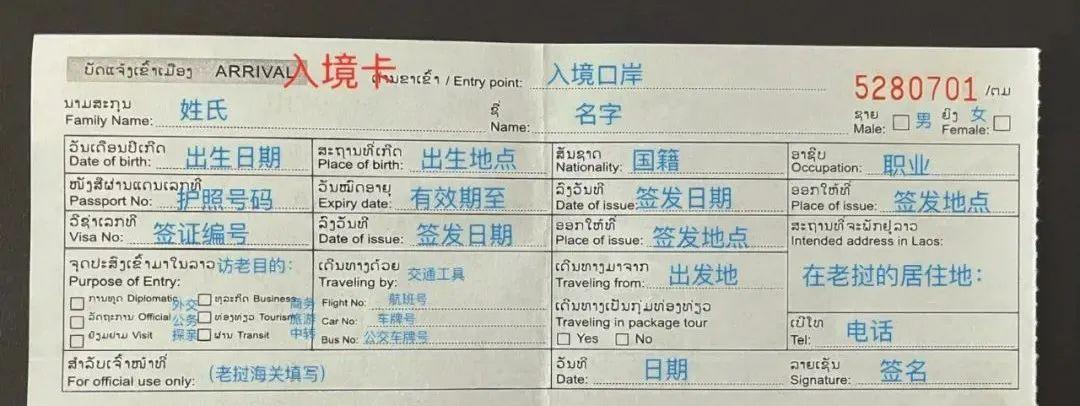 ບັດແຈ້ງເຂົ້າເມືອງ ARRIVAL 入境卡 ດ່ານຂາເຂົ້າ / Entry point: 入境口岸 5280701 /ຕມ
ນາມສະກຸນ ຊື່ ຊາຍ ຍິງ
Family Name: 姓氏 Name: 名字 Male: 男 Female: 女
ວັນເດືອນປີເກີດ ສະຖານທີ່ເກີດ ສັນຊາດ ອາຊີບ
Date of birth: 出生日期 Place of birth: 出生地点 Nationality: 国籍 Occupation: 职业
ໜັງສືຜ່ານແດນເລກທີ ວັນໝົດອາຍຸ ລົງວັນທີ ອອກໃຫ້ທີ່
Passport No: 护照号码 Expiry date: 有效期至 Date of issue: 签发日期 Place of issue: 签发地点
ວີຊ່າເລກທີ ລົງວັນທີ ອອກໃຫ້ທີ່ ສະຖານທີ່ຈະພັກຢູ່ລາວ
Visa No: 签证编号 Date of issue: 签发日期 Place of issue: 签发地点 Intended address in Laos:
ຈຸດປະສົງເຂົ້າມາໃນລາວ 访老目的： ເດີນທາງດ້ວຍ ເດີນທາງມາຈາກ
Purpose of Entry: Traveling by: 交通工具 Traveling from: 出发地 在老挝的居住地：
ການທູດ Diplomatic 外交 ທຸລະກິດ Business 商务 Flight No: 航班号 ເດີນທາງເປັນກຸ່ມທ່ອງທ່ຽວ
ລັດຖະການ Official 公务 ທ່ອງທ່ຽວ Tourism 旅游 Car No: 车牌号 Traveling in package tour ເບີໂທ
ຢ້ຽມຢາມ Visit 探亲 ຜ່ານ Transit 中转 Bus No: 公交车牌号 Yes No Tel: 电话
ສຳລັບເຈົ້າໜ້າທີ່ ວັນທີ ລາຍເຊັນ
For official use only: (老挝海关填写) Date: 日期 Signature: 签名